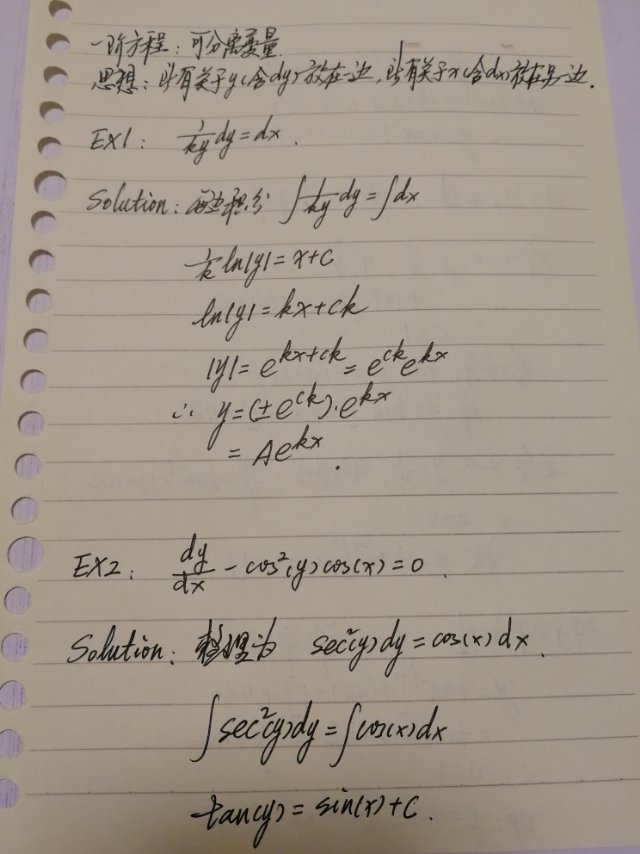 一阶方程：可分离变量
思想：所有关于y(含dy)放在一边，所有关于x(含dx)放在另一边.
EX1: 1/(ky) dy = dx.
Solution: 两边积分 ∫ 1/(ky) dy = ∫ dx
1/k ln|y| = x + C
ln|y| = kx + ck
|y| = e^(kx+ck) = e^(ck) e^(kx)
∴ y = (± e^(ck)) · e^(kx)
= A e^(kx).
EX2: dy/dx - cos²(y) cos(x) = 0.
Solution: 整理为 sec²(y) dy = cos(x) dx.
∫ sec²(y) dy = ∫ cos(x) dx
tan(y) = sin(x) + C.